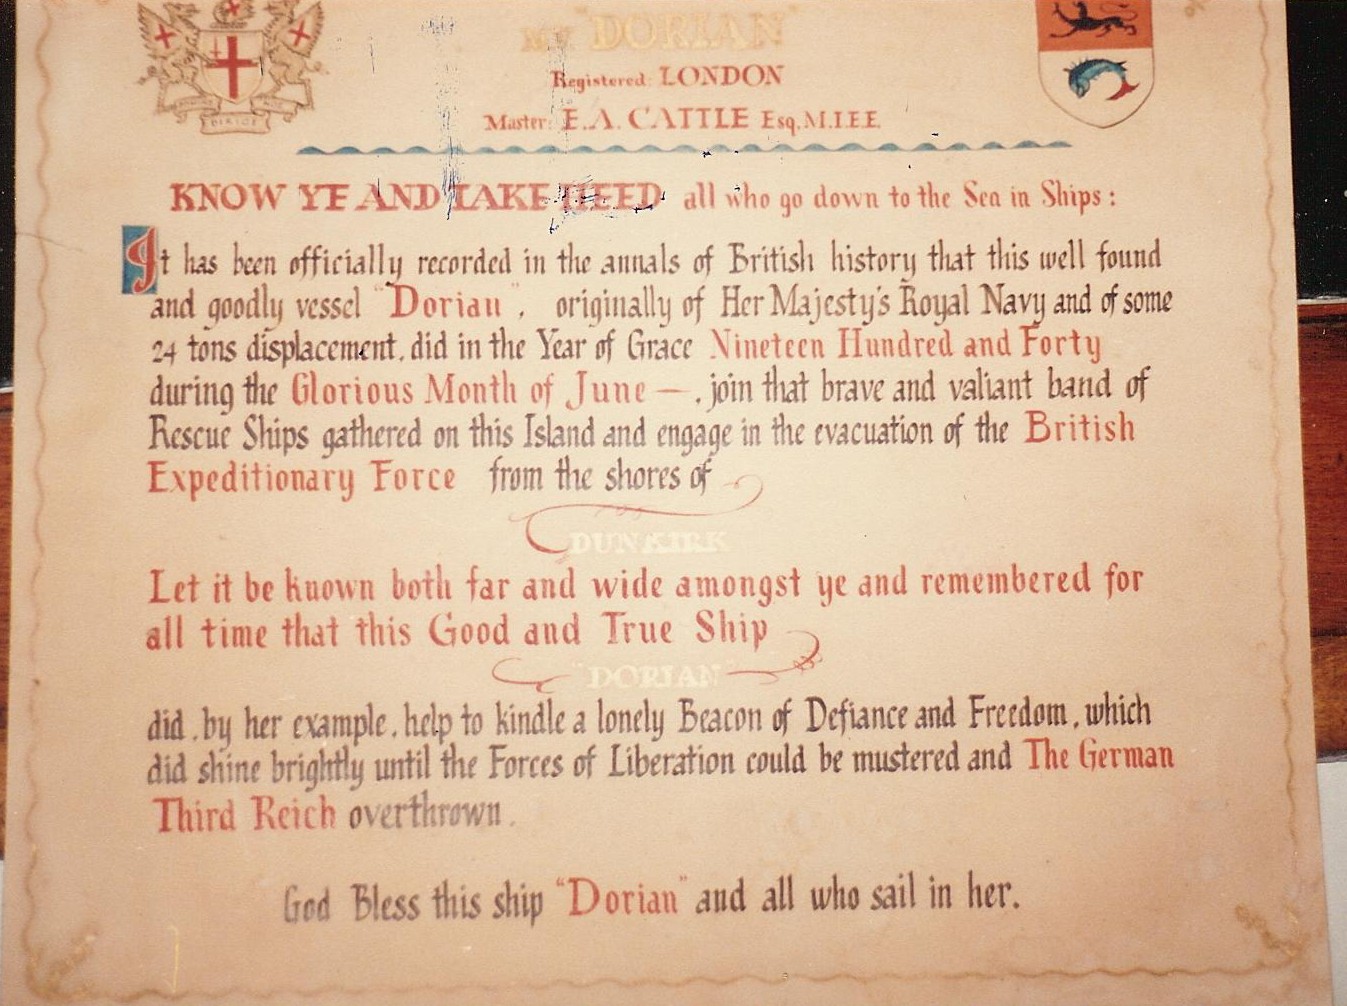 MY "DORIAN"
Registered: LONDON
Master: E.A. CATTLE Esq. M.I.E.E.
KNOW YE AND TAKE HEED all who go down to the Sea in Ships :
It has been officially recorded in the annals of British history that this well found
and goodly vessel "Dorian", originally of Her Majesty's Royal Navy and of some
24 tons displacement, did in the Year of Grace Nineteen Hundred and Forty
during the Glorious Month of June —, join that brave and valiant band of
Rescue Ships gathered on this Island and engage in the evacuation of the British
Expeditionary Force from the shores of
DUNKIRK
Let it be known both far and wide amongst ye and remembered for
all time that this Good and True Ship
"DORIAN"
did, by her example, help to kindle a lonely Beacon of Defiance and Freedom, which
did shine brightly until the Forces of Liberation could be mustered and The German
Third Reich overthrown.
God Bless this ship "Dorian" and all who sail in her.